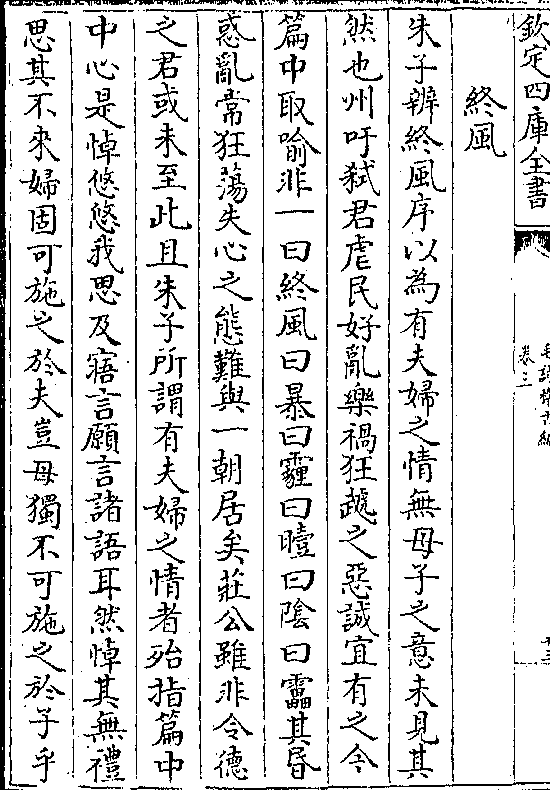 欽定四庫全書
卷三
終風
朱子辨終風序以為有夫婦之情無母子之意未見其
然也州吁弑君虐民好亂樂禍狂蕩之惡誠宜有之今
篇中取喻非一曰終風曰暴曰霾曰曀曰陰曰靁其昏
惑亂常狂蕩失心之態難與一朝居矣莊公雖非令德
之君或未至此且朱子所謂有夫婦之情者殆指篇中
中心是悼悠悠我思及寤言願言諸語耳然悼其無禮
思其不來婦固可施之於夫豈母獨不可施之於子乎